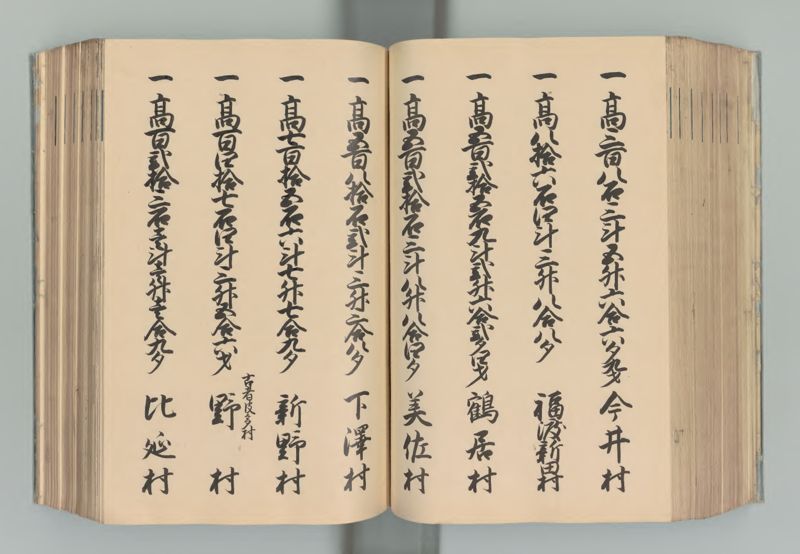 一高三百八石三斗五升六合六夕九才 今井村
一高八拾六石四斗三升八合八夕 福渡新田村
一高五百弐拾五石九斗弐升六合弐夕四才 鶴居村
一高五百弐拾石三斗八升八合四夕 美佐村
一高五百八拾石弐斗三升二合八夕 下澤村
一高七百拾五石六斗七升七合九夕 新野村
一高百四拾七石四斗三升五合六才 野村
古者
一高百弐拾三石壱斗三升壱合九夕 比延村